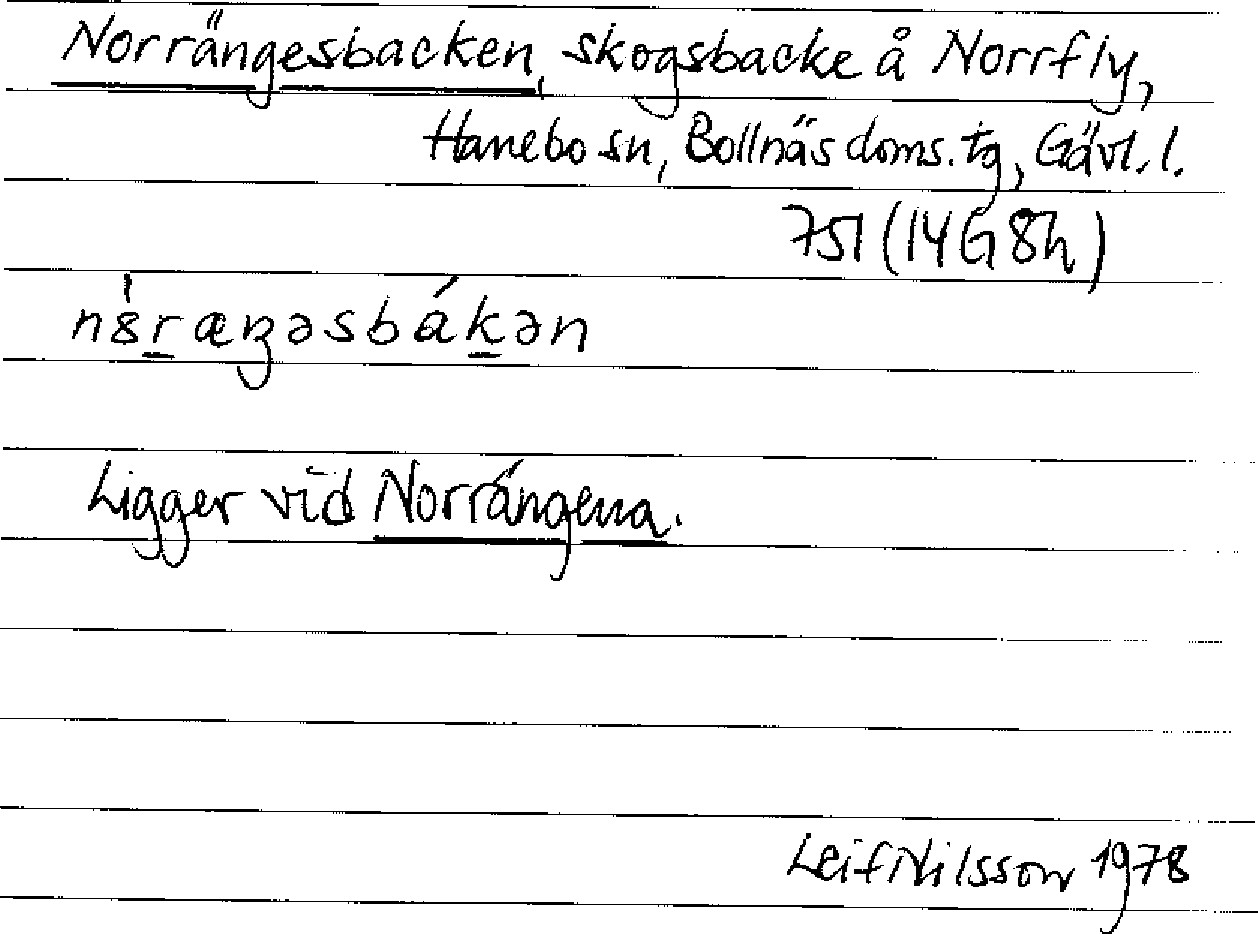 Norrängesbacken, skogsbacke å Norrfly,
Hanebo sn, Bollnäs doms. tg, Gävl. l.
751 (14G 8h)
n8́ræŋəsbákən
Ligger vid Norrängena.
Leif Nilsson 1978